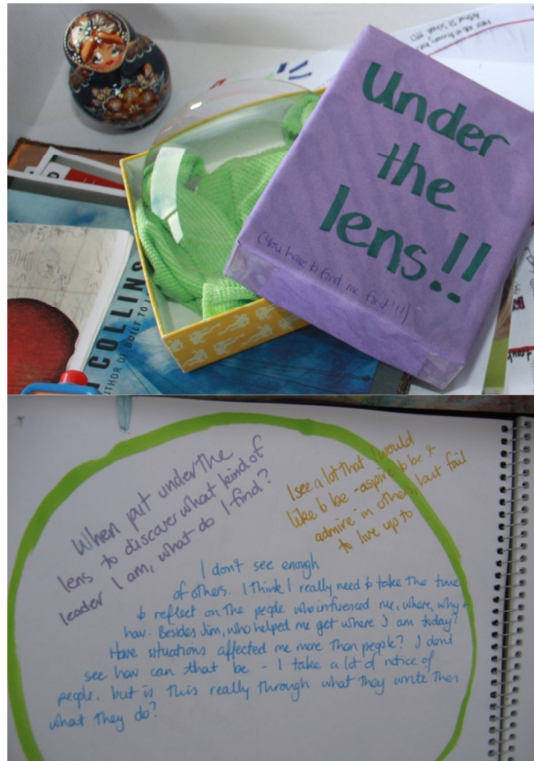 Under
the
lens!!
(You have to find me first!!!)
COLLINS
AUTHOR OF BUILT TO L
When put under the
lens to discover what kind of
leader I am, what do I find?
I see a lot that I would
like to be - aspire to be &
admire in others, but fail
to live up to
I don't see enough
of others. I think I really need to take the time
to reflect on the people who influenced me, where, why &
how. Besides Jim, who helped me get where I am today?
Have situations affected me more than people? I don't
see how can that be - I take a lot of notice of
people, but is this really through what they write then
what they do?